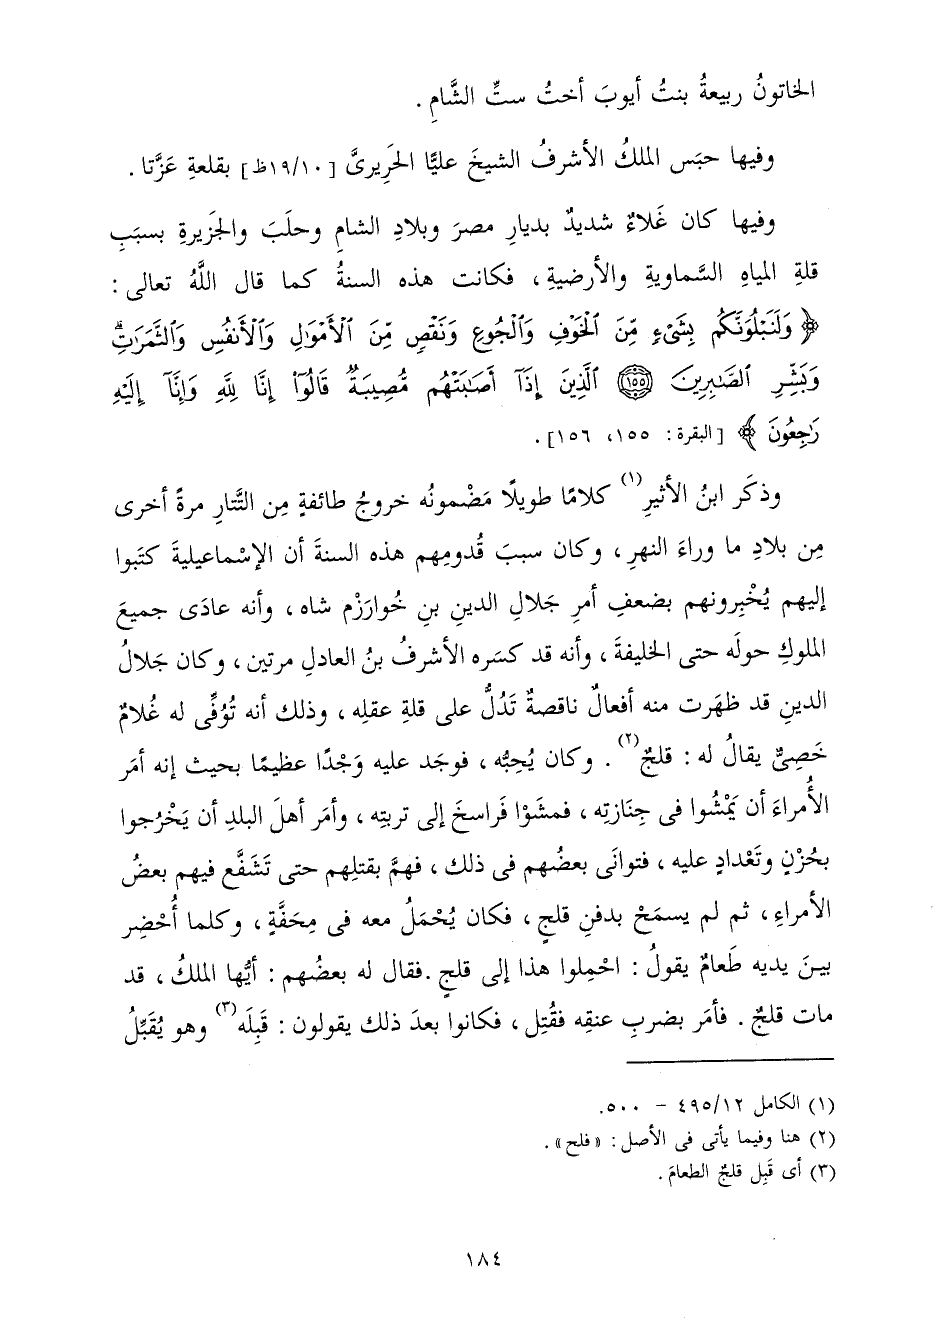 الخاتونُ ربيعةُ بنتُ أيوبَ أختُ ستِّ الشَّامِ .
وفيها حبَس الملكُ الأشرفُ الشيخَ عليًّا الحَرِيرىَّ [ ١٩/١٠ظ ] بقلعةِ عَزَّتا .
وفيها كان غَلاءٌ شديدٌ بديارِ مصرَ وبلادِ الشامِ وحلَبَ والجَزيرةِ بسببِ
قلةِ المياهِ السَّماويةِ والأرضيةِ ، فكانت هذه السنةُ كما قال اللَّهُ تعالى :
﴿ وَلَنَبْلُوَنَّكُم بِشَىْءٍ مِّنَ ٱلْخَوْفِ وَٱلْجُوعِ وَنَقْصٍ مِّنَ ٱلْأَمْوَٰلِ وَٱلْأَنفُسِ وَٱلثَّمَرَٰتِ ۗ
وَبَشِّرِ ٱلصَّٰبِرِينَ ١٥٥ ٱلَّذِينَ إِذَآ أَصَٰبَتْهُم مُّصِيبَةٌ قَالُوٓا۟ إِنَّا لِلَّهِ وَإِنَّآ إِلَيْهِ
رَٰجِعُونَ ﴾ [ البقرة : ١٥٥، ١٥٦] .
وذكَر ابنُ الأثيرِ(١) كلامًا طويلًا مَضْمونُه خروجُ طائفةٍ مِن التَّتارِ مرةً أخرى
مِن بلادِ ما وراءَ النهرِ ، وكان سببَ قُدومِهم هذه السنةَ أن الإسْماعيليةَ كتَبوا
إليهم يُخْبِرونهم بضعفِ أمرِ جَلالِ الدينِ بنِ خُوارَزْم شاه ، وأنه عادَى جميعَ
الملوكِ حولَه حتى الخليفةَ ، وأنه قد كسَره الأشرفُ بنُ العادلِ مرتين ، وكان جَلالُ
الدينِ قد ظهَرت منه أفعالٌ ناقصةٌ تَدُلُّ على قلةِ عقلِه ، وذلك أنه تُوُفِّى له غُلامٌ
خَصِىٌّ يقالُ له : قلجٌ(٢) . وكان يُحِبُّه ، فوجَد عليه وَجْدًا عظيمًا بحيث إنه أمَر
الأُمراءَ أن يَمْشُوا فى جِنَازتِه ، فمشَوْا فَراسخَ إلى تربتِه ، وأمَر أهلَ البلدِ أن يَخْرُجوا
بحُزْنٍ وتَعْدادٍ عليه ، فتوانَى بعضُهم فى ذلك ، فهمَّ بقتلِهم حتى تَشَفَّع فيهم بعضُ
الأمراءِ ، ثم لم يسمَحْ بدفنِ قلجٍ ، فكان يُحْمَلُ معه فى مِحَفَّةٍ ، وكلما أُحْضِر
بينَ يديه طَعامٌ يقولُ : احْمِلوا هذا إلى قلجٍ . فقال له بعضُهم : أيُّها الملكُ ، قد
مات قلجٌ . فأمَر بضربِ عنقِه فقُتِل ، فكانوا بعدَ ذلك يقولون : قَبِلَه(٣) وهو يُقَبِّلُ
(١) الكامل ٤٩٥/١٢ – ٥٠٠.
(٢) هنا وفيما يأتى فى الأصل : « فلح » .
(٣) أى قَبِل قلجُ الطعامَ .
١٨٤